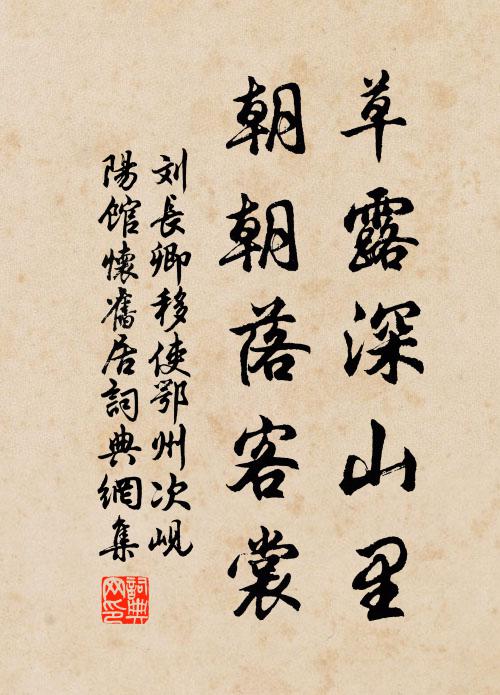 草露深山里
朝朝落客裳
刘長卿移使鄂州次峴
陽館懷舊居詞典網集
詞典
网印